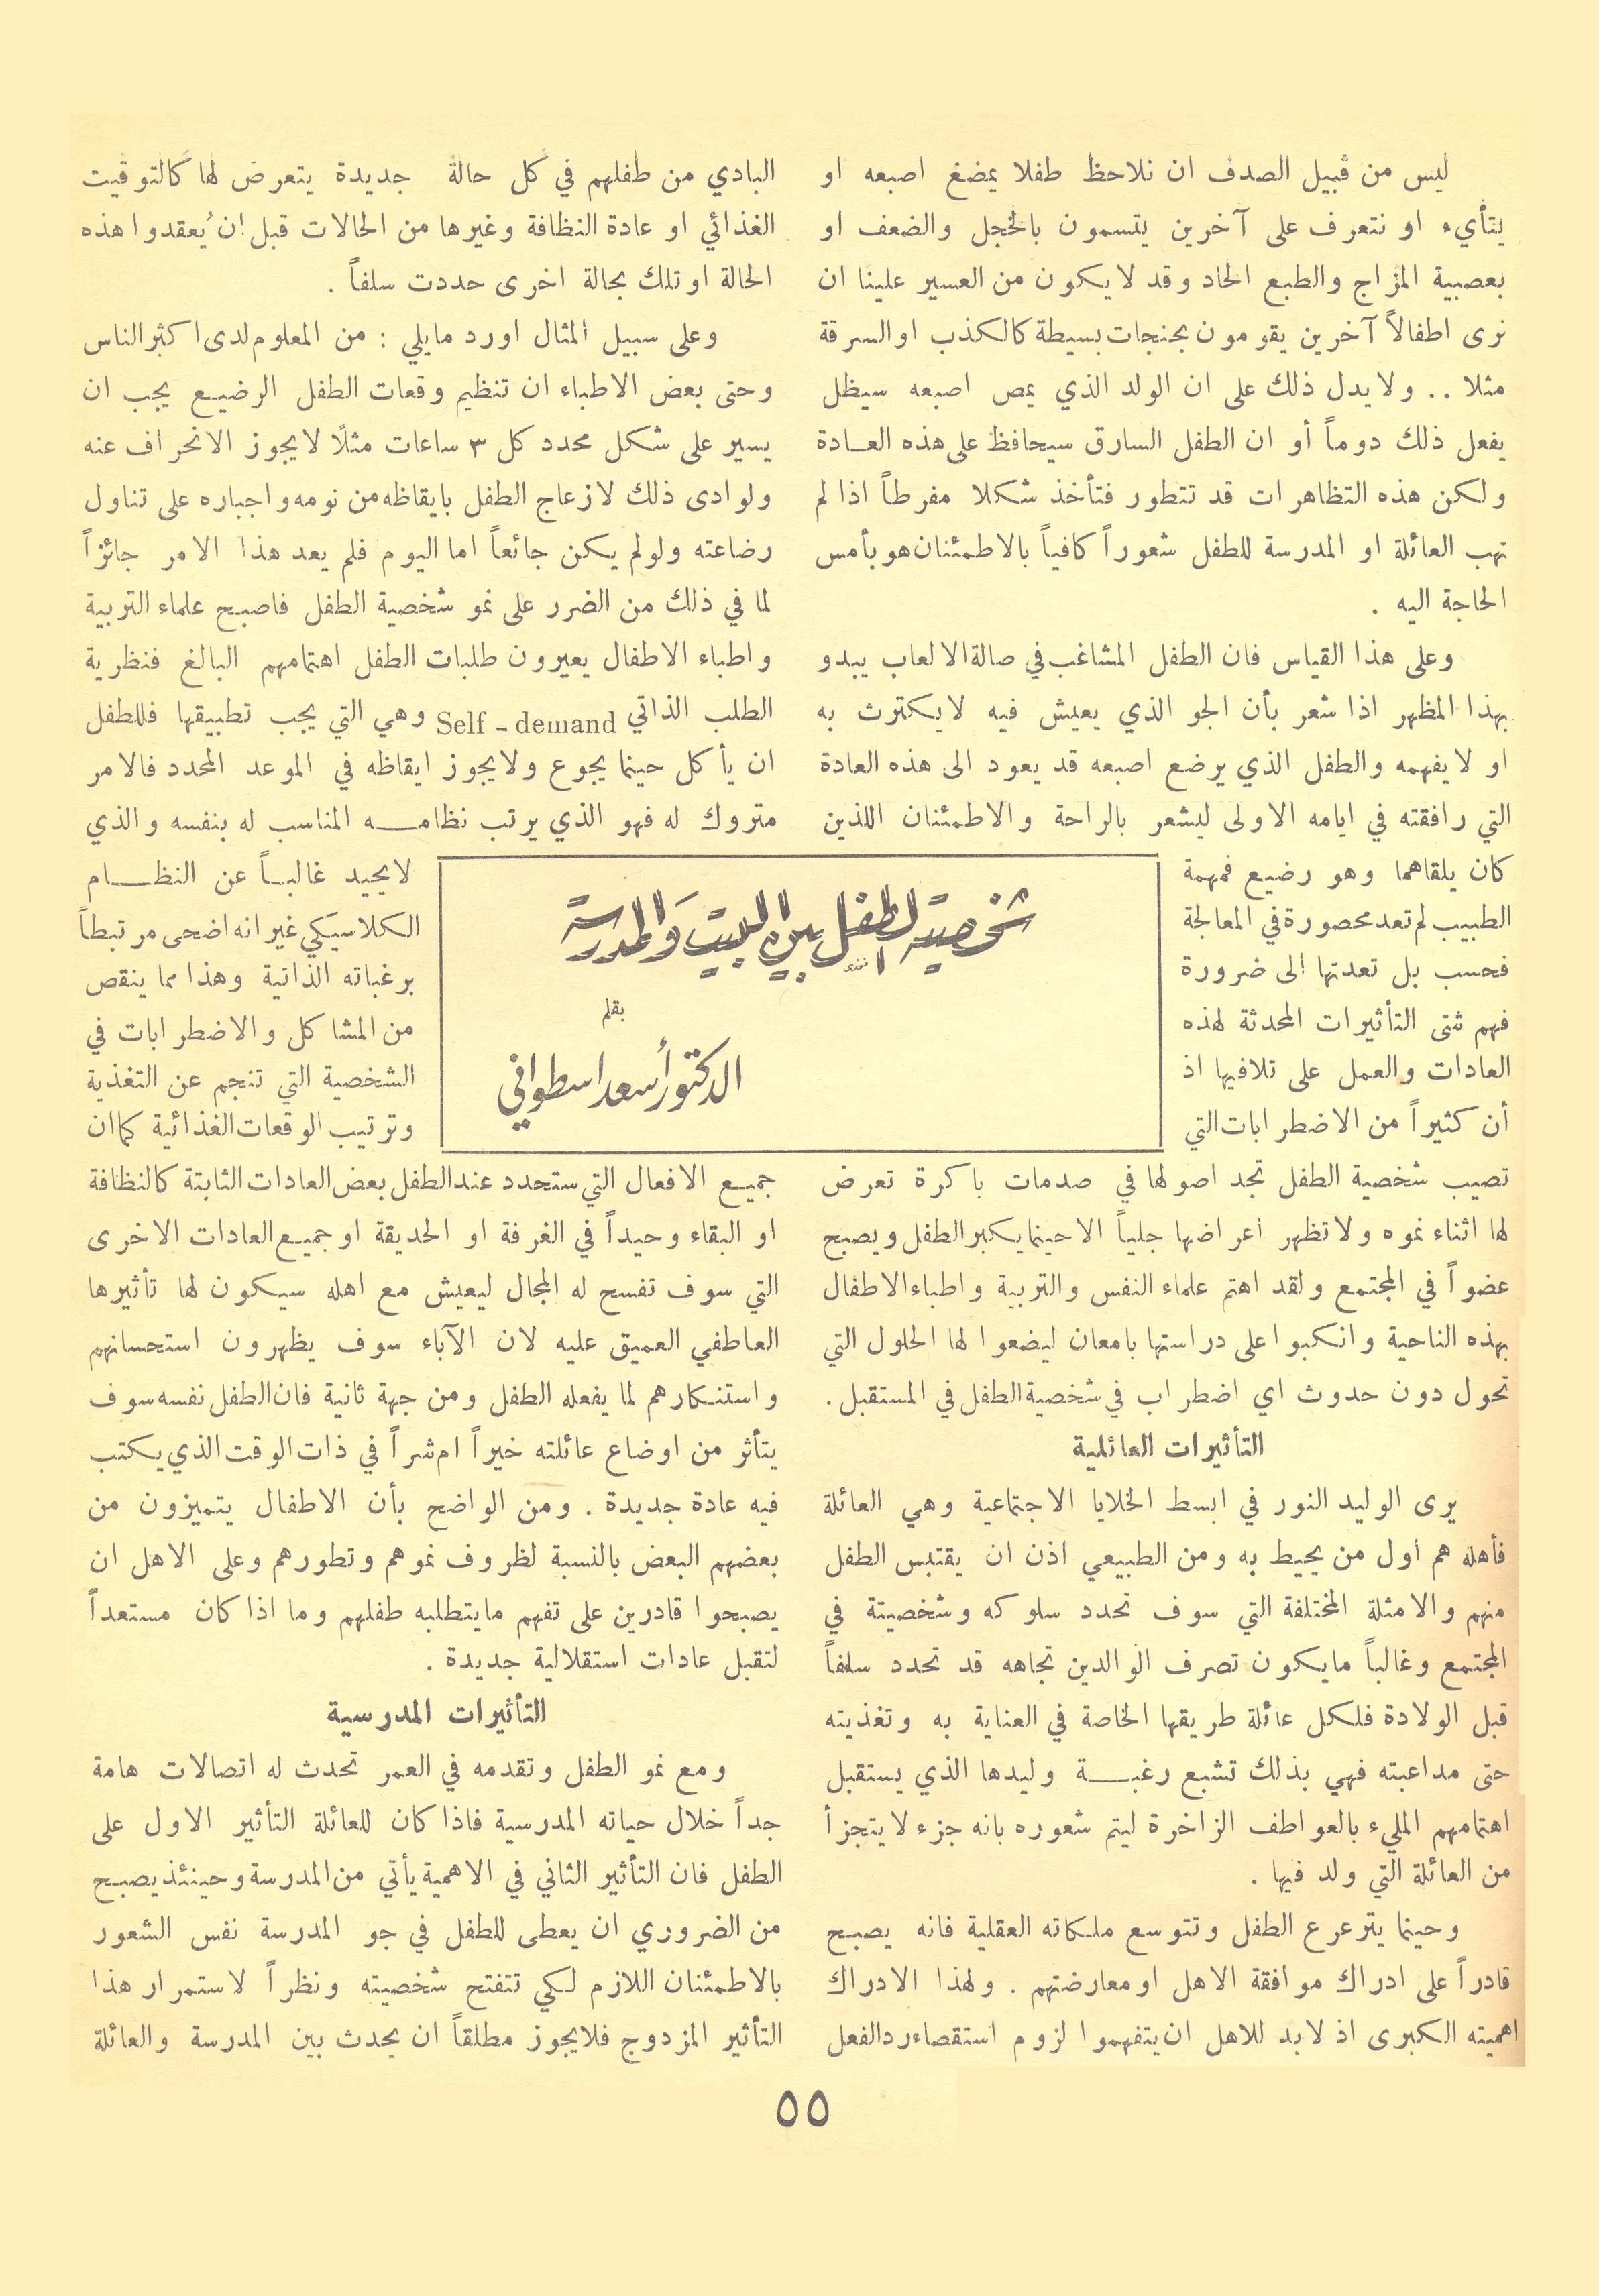 شخصية الطفل بين البيت والمدرسة
بقلم
الدكتور أسعد اسطواني
ليس من قبيل الصدف ان نلاحظ طفلا يمضغ اصبعه او
يتأيء او نتعرف على آخرين يتسمون بالخجل والضعف او
بعصبية المزاج والطبع الحاد وقد لا يكون من العسير علينا ان
نرى اطفالاً آخرين يقومون بجنحات بسيطة كالكذب او السرقة
مثلا .. ولا يدل ذلك على ان الولد الذي يمص اصبعه سيظل
يفعل ذلك دوماً أو ان الطفل السارق سيحافظ على هذه العـادة
ولكن هذه التظاهرات قد تتطور فتأخذ شكلا مفرطاً اذا لم
تهب العائلة او المدرسة للطفل شعوراً كافياً بالاطمئنان هو بأمس
الحاجة اليه .
وعلى هذا القياس فان الطفل المشاغب في صالة الالعاب يبدو
بهذا المظهر اذا شعر بأن الجو الذي يعيش فيه لا يكترث به
او لا يفهمه والطفل الذي يرضع اصبعه قد يعود الى هذه العادة
التي رافقته في ايامه الاولى ليشعر بالراحة والاطمئنان اللذين
كان يلقاهما وهو رضيع فمهمة
الطبيب لم تعد محصورة في المعالجة
فحسب بل تعدتها الى ضرورة
فهم شتى التأثيرات المحدثة لهذه
العادات والعمل على تلافيها اذ
أن كثيراً من الاضطرابات التي
تصيب شخصية الطفل تجد اصولها في صدمات باكرة تعرض
لها اثناء نموه ولا تظهر اعراضها جلياً الا حينما يكبر الطفل ويصبح
عضواً في المجتمع ولقد اهتم علماء النفس والتربية واطباء الاطفال
بهذه الناحية وانكبوا على دراستها بامعان ليضعوا لها الحلول التي
تحول دون حدوث اي اضطراب في شخصية الطفل في المستقبل .
التأثيرات العائلية
يرى الوليد النور في ابسط الخلايا الاجتماعية وهي العائلة
فأهله هم اول من يحيط به ومن الطبيعي اذن ان يقتبس الطفل
منهم والامثلة المختلفة التي سوف تحدد سلوكه وشخصيتة في
المجتمع وغالباً ما يكون تصرف الوالدين تجاهه قد تحدد سلفاً
قبل الولادة فلكل عائلة طريقها الخاصة في العناية به وتغذيته
حتى مداعبته فهي بذلك تشبع رغبــة وليدها الذي يستقبل
اهتمامهم المليء بالعواطف الزاخرة ليتم شعوره بانه جزء لا يتجزأ
من العائلة التي ولد فيها .
وحينما يترعرع الطفل وتتوسع ملكاته العقلية فانه يصبح
قادراً على ادراك موافقة الاهل او معارضتهم . ولهذا الادراك
اهميته الكبرى اذ لا بد للاهل ان يتفهموا لزوم استقصاء رد الفعل
البادي من طفلهم في كل حالة جديدة يتعرض لها كالتوقيت
الغذائي او عادة النظافة وغيرها من الحالات قبل ان يُعقدوا هذه
الحالة او تلك بحالة اخرى حددت سلفاً .
وعلى سبيل المثال اورد مايلي : من المعلوم لدى اكثر الناس
وحتى بعض الاطباء ان تنظيم وقعات الطفل الرضيع يجب ان
يسير على شكل محدد كل ٣ ساعات مثلاً لا يجوز الانحراف عنه
ولو ادى ذلك لازعاج الطفل بايقاظه من نومه واجباره على تناول
رضاعته ولو لم يكن جائعاً اما اليوم فلم يعد هذا الامر جائزاً
لما في ذلك من الضرر على نمو شخصية الطفل فاصبح علماء التربية
واطباء الاطفال يعيرون طلبات الطفل اهتمامهم البالغ فنظرية
الطلب الذاتي Self - demand وهي التي يجب تطبيقها فللطفل
ان يأكل حينما يجوع ولا يجوز ايقاظه في الموعد المحدد فالامر
متروك له فهو الذي يرتب نظامــه المناسب له بنفسه والذي
لا يحيد غالبـاً عن النظــام
الكلاسيكي غير انه اضحى مرتبطاً
برغباته الذاتية وهذا مما ينقص
من المشاكل والاضطرابات في
الشخصية التي تنجم عن التغذية
وترتيب الوقعات الغذائية كما ان
جميع الافعال التي ستحدد عند الطفل بعض العادات الثابتة كالنظافة
او البقاء وحيداً في الغرفة او الحديقة او جميع العادات الاخرى
التي سوف تفسح له المجال ليعيش مع اهله سيكون لها تأثيرها
العاطفي العميق عليه لان الآباء سوف يظهرون استحسانهم
واستنكارهم لما يفعله الطفل ومن جهة ثانية فان الطفل نفسه سوف
يتأثر من اوضاع عائلته خيراً ام شراً في ذات الوقت الذي يكتب
فيه عادة جديدة . ومن الواضح بأن الاطفال يتميزون من
بعضهم البعض بالنسبة لظروف نموهم وتطورهم وعلى الاهل ان
يصبحوا قادرين على تفهم ما يتطلبه طفلهم وما اذا كان مستعداً
لتقبل عادات استقلالية جديدة .
التأثيرات المدرسية
ومع نمو الطفل وتقدمه في العمر تحدث له اتصالات هامة
جداً خلال حياته المدرسية فاذا كان للعائلة التأثير الاول على
الطفل فان التأثير الثاني في الاهمية يأتي من المدرسة وحينئذ يصبح
من الضروري ان يعطى للطفل في جو المدرسة نفس الشعور
بالاطمئنان اللازم لكي تتفتح شخصيته ونظراً لاستمرار هذا
التأثير المزدوج فلا يجوز مطلقاً ان يحدث بين المدرسة والعائلة
٥٥